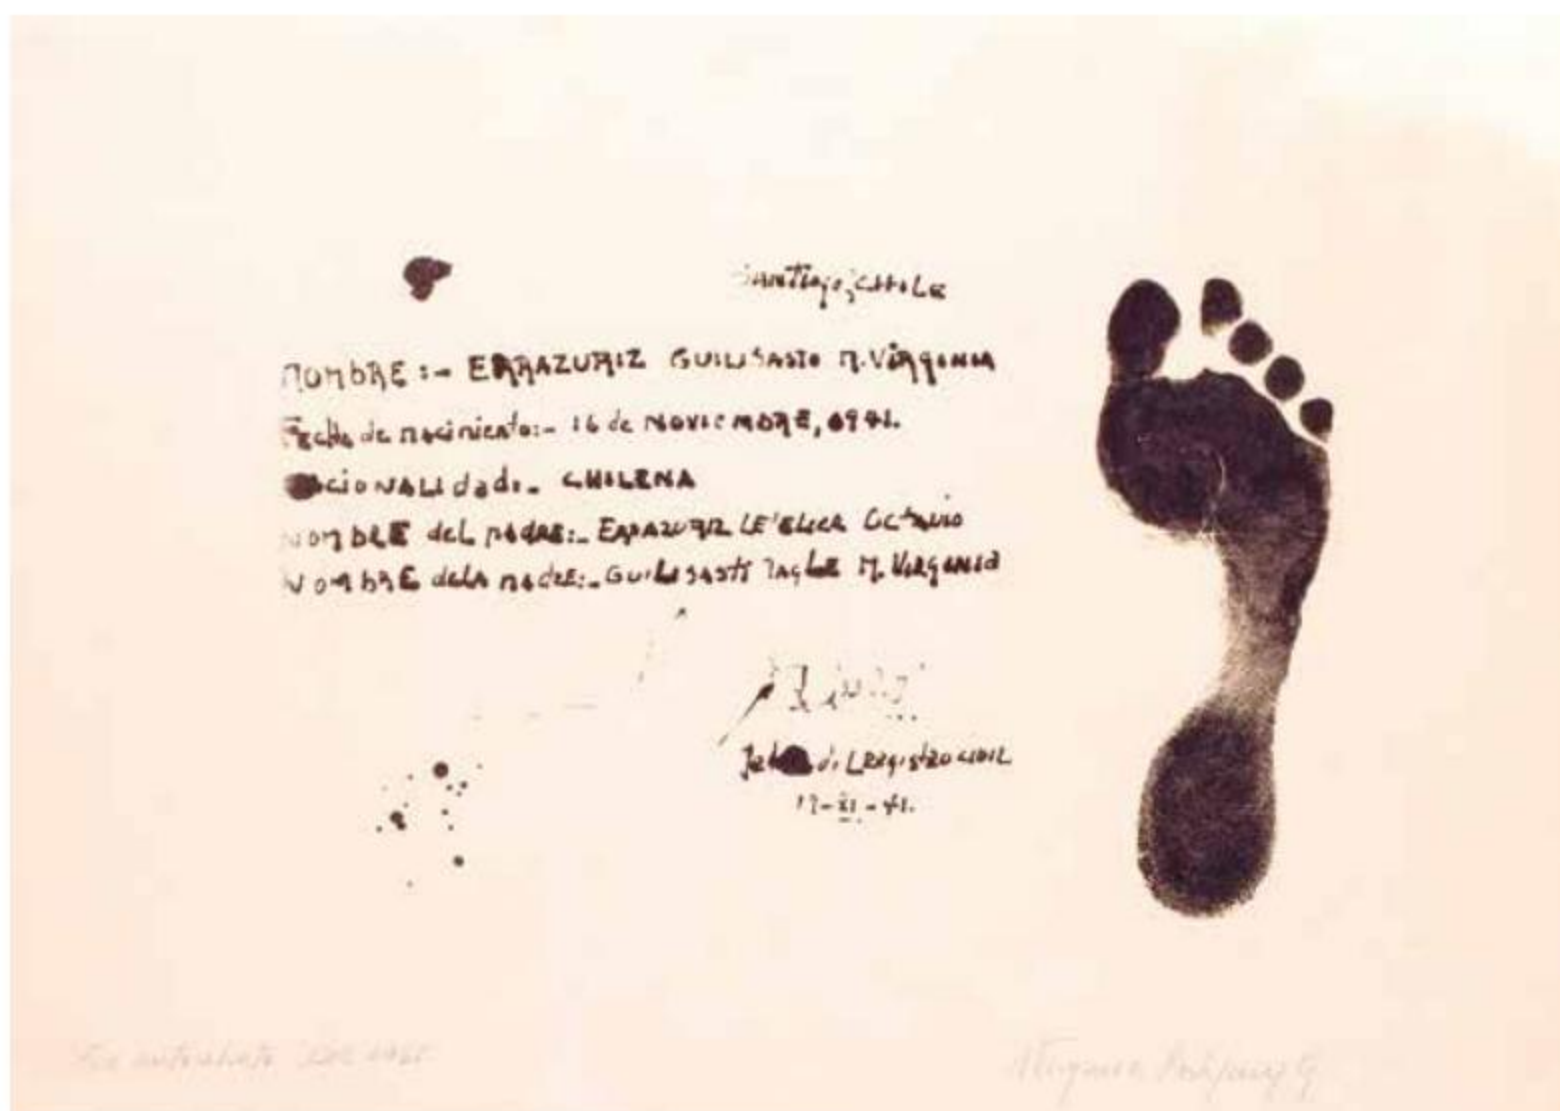 Santiago, CHiLE
NOMBRE :- ERRAZURIZ GUILISASTI M. VIRGINIA
Fecha de nacimiento:- 16 de NOVIEMBRE, 1941.
NacioNALidad:- CHILENA
NOMBRE del PADRE:- ERRAZURIZ LE'ELIER OCTAVIO
NOMBRE dela MADRE:- GUILISASTI TAGLE M. VIRGINIA
del REgistRO CIVIL
17-XI-41.